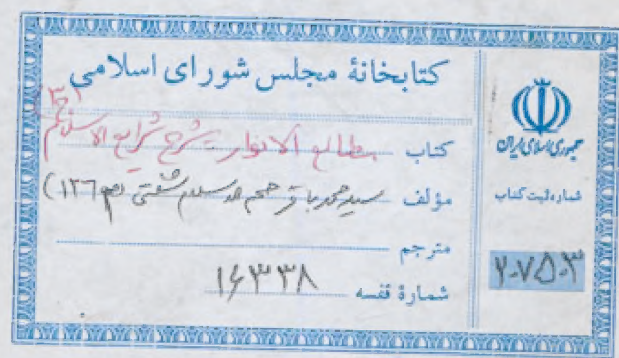 کتابخانهٔ مجلس شورای اسلامی
کتاب مطالع الانوار - شرح شرایع الاسلام
مؤلف سید محمد باقر حجم الاسلام شفتی (م ۱۲۶۰)
مترجم
شمارهٔ قفسه ۱۶۳۳۸
جمهوری اسلامی ایران
شماره ثبت کتاب
۲۰۷۵۰۳